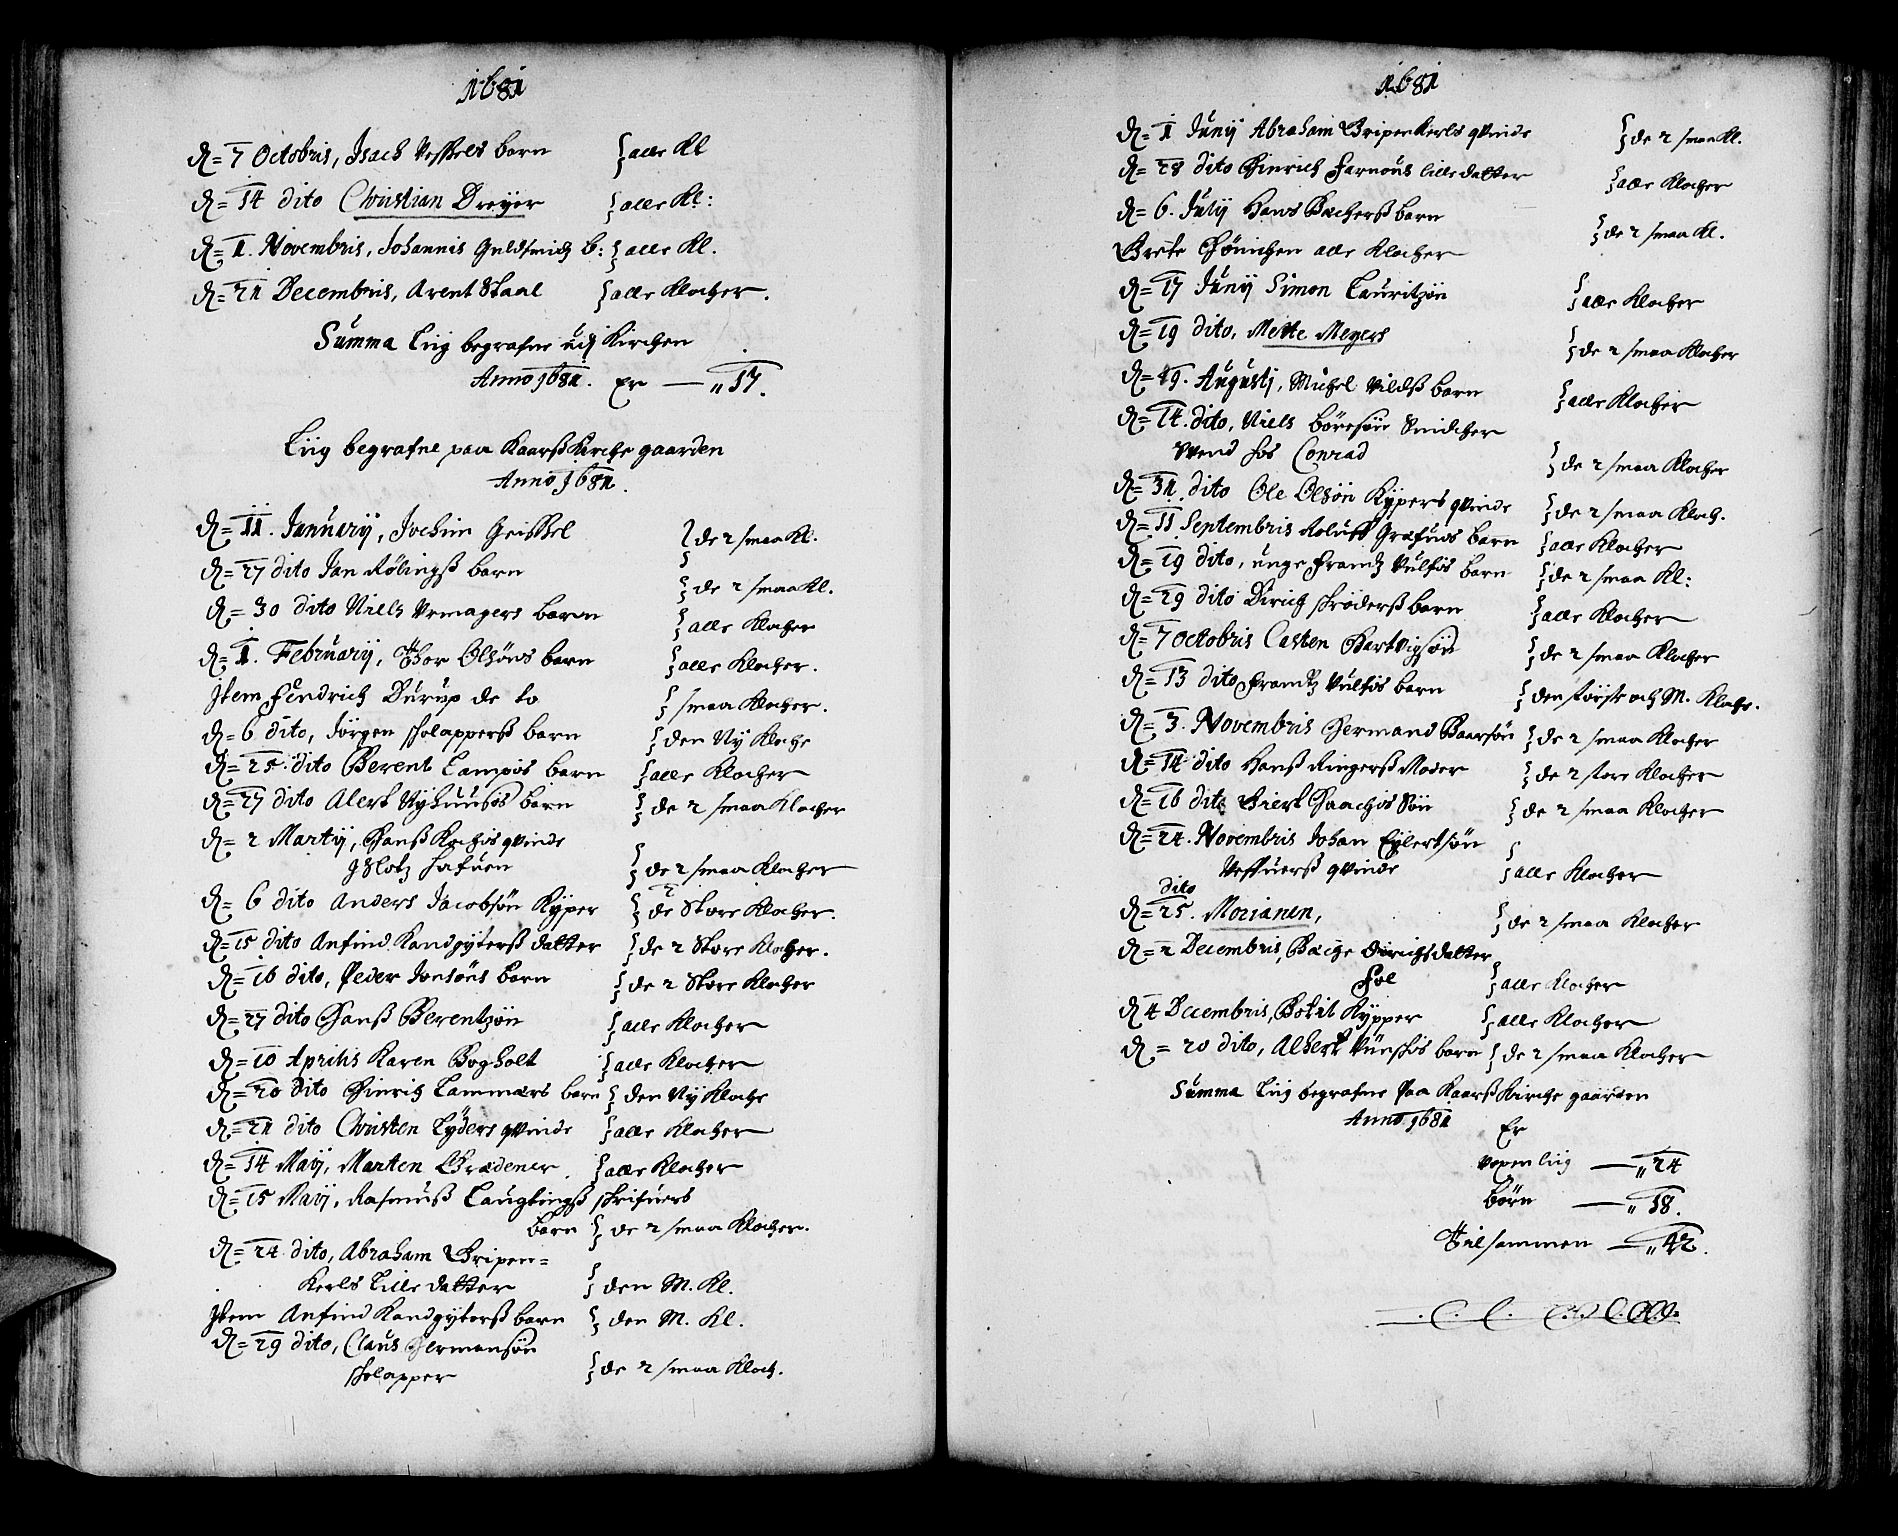 1681
D. 7 Octobris, Isach Vessels barn } alle Kl
D. 14 dito Christian Dreyer } alle Kl:
D. 1. Novembris, Johannis Guldsmidz b: } alle Kl.
D. 21 Decembris, Arent Staal } alle Klocher.
Summa Liig begrafne udj Kirchen
Anno 1681. Er — „ 17.
Liig begrafne paa Kaarß Kirche gaarden
Anno 1681.
D. 11. January, Jochim Geishel } de 2 smaa Kl.
D. 27 dito Jan Rølingß barn } de 2 smaa Kl.
D. 30 dito Niels Vemagers barn } alle Klocher
D. 1. February, Thor Olsøns barn } alle Klocher.
Item Fendrich Durup de to } smaa Klocher.
D. 6 dito, Jørgen Skolapperß barn } den Ny Kloche
D. 25. dito Berent Lampis barn } alle Klocher
D. 27 dito Alert Nyhuuses barn } de 2 smaa Klocher
D. 2 Martij, Hanß Kochis qvinde
i Slotz hafuen } de 2 smaa Klocher
D. 6 dito Anders Jacobsøn Kyper } de 2 Store Klocher.
D. 15 dito Anfind Kandgyterß datter } de 2 Store Klocher.
D. 16 dito, Peder Jonsøns barn } de 2 Store Klocher
D. 27 dito Hanß Berentzøn } alle Klocher
D. 10 Aprilis Karen Bogholt } alle Klocher
D. 20 dito Hinrich Lammers barn } den Ny Kloche
D. 21 dito Christen Lyders qvinde } alle Klocher
D. 14 Maij, Marten Grædener } alle Klocher
D. 15 Maij, Rasmuß Lauglingß skrifuers
barn } de 2 smaa Klocher.
D. 24 dito, Abraham Gripen=
Kerls Lille datter } den M. Kl.
Item Anfind Kandgyterß barn } den M. Kl.
D. 29 dito, Claus Hermansøn
skolapper } de 2 smaa Kloch.
1681
D. 1 Junij Abraham Gripenkerls qvinde } de 2 smaa Kl.
D. 28 dito Hinrich Farnøus lille datter } alle Klocher
D. 6. July Hans Bacherß barn } de 2 smaa Kl.
Grete Hønichen alle Klocher
D. 17 Junij Simon Lauritzøn } alle Klocher
D. 19 dito, Mette Meyers } de 2 smaa Klocher
D. 9. Augustj, Michel Vildß barn } alle Klocher
D. 14. dito, Niels Børesøn Snidcher
Svend hos Conrad } de 2 smaa Klocher
D. 31 dito Ole Olsøn Kypers qvinde } de 2 smaa Kloch.
D. 11 Septembris Roluff Grafuns barn } alle Klocher
D. 19 dito, unge Frantz Vulfis barn } de 2 smaa Kl:
D. 29 dito Dirich skrøderß barn } alle Klocher
D. 7 Octobris Casten Hartvigsøn } de 2 smaa Klocher
D. 13 dito Frantz Vulfis barn } den største och M. Kloche.
D. 3. Novembris Hermand Baarsøn } de 2 smaa Klocher
D. 14 dito Hanß Ringerß Moder } de 2 store Klocher
D. 16 dito Giert Haachis Søn } de 2 smaa Klocher
D. 24. Novembris Johan Eylertsøn
Veffuerß qvinde } alle Klocher
dito
D. 25. Morianen, } de 2 smaa Klocher
D. 2 Decembris, Bæche Dirichsdatter
Føl } alle Klocher
D 4 Decembris, Botil Kypper } alle Klocher
D. 20 dito, Albert Vinshis barn } de 2 smaa Klocher
Summa Liig begrafne Paa Kaarß Kirche gaarden
Anno 1681 Er
Voxen liig — „ 24
Børn — „ 18.
Tilsammen — „ 42.